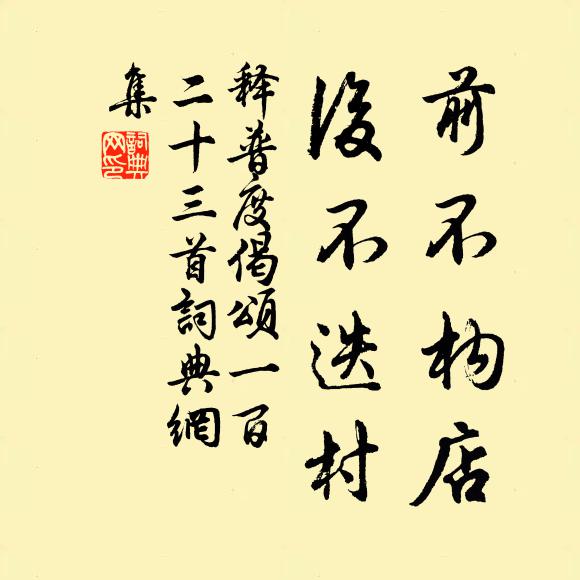 前不构店
後不迭村
释普度偈頌一百
二十三首詞典網
集
詞典
网印